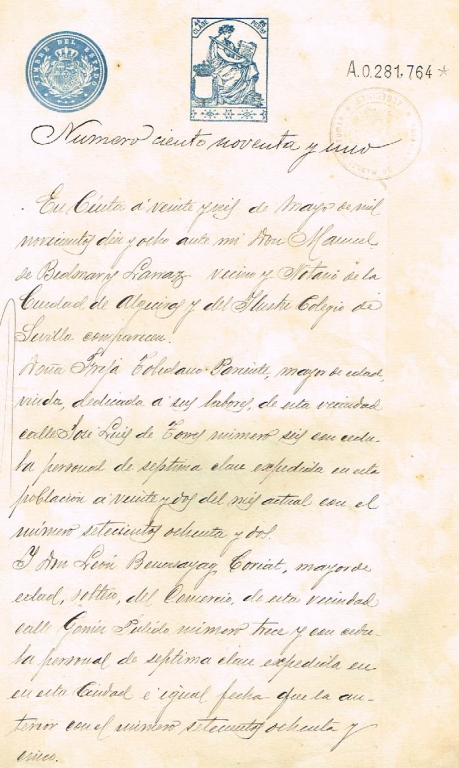 TIMBRE DEL ESTADO
CLASE
A.0.281.764
Numero ciento noventa y uno
En Ceuta á veinte y seis de Mayo de mil
novecientos diez y ocho ante mi Don Manuel
de Bedmar y Larraz vecino y Notario de la
Ciudad de Algeciras y del Ilustre Colegio de
Sevilla comparecen.
Doña Freja Toledano Pariente, mayor de edad,
viuda, dedicada á sus labores, de esta vecindad
calle José Luis de Torres número seis con cedu-
la personal de septima clase expedida en esta
población á veinte y dos del mes actual con el
número setecientos ochenta y dos.
Y Don León Benasayag Coriat, mayor de
edad, soltero, del Comercio, de esta vecindad
calle Gomez Pulido número trece y con cedu-
la personal de septima clase expedida en
en esta Ciudad é igual fecha que la an-
terior con el número setecientos ochenta y
cinco.